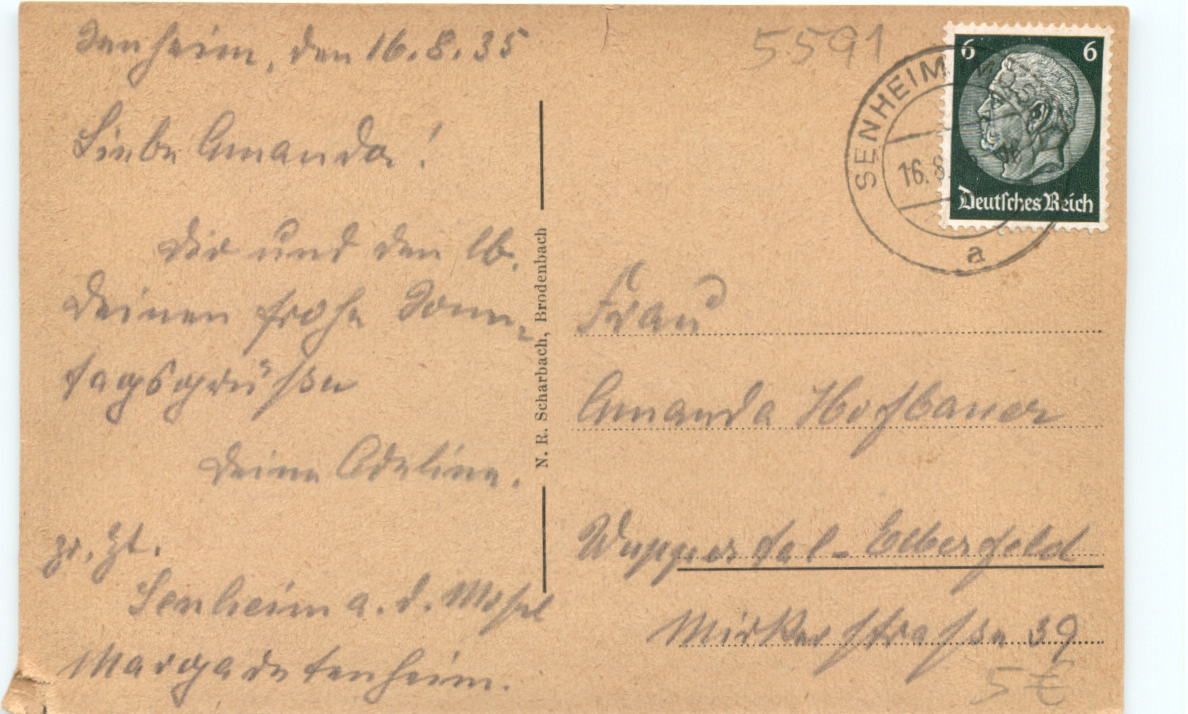 Senheim, den 16.8.35
Liebe Amanda!
Dir und den lb.
Deinen frohe Sonn-
tagsgrüße
Deine Adeline.
zr. Zt.
Senheim a. d. Mosel
Margaretenheim.
N. R. Scharbach, Brodenbach
5591
SENHEIM (MOSEL)
16.8.
a
6 6
Deutsches Reich
Frau
Amanda Hofbauer
Wuppertal-Elberfeld
Mirkerstraße 39
5 €